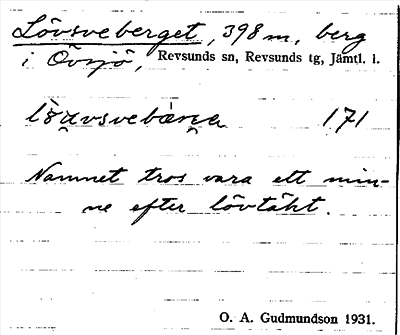 Lövsveberget, 398 m, berg
i Övsjö, Revsunds sn, Revsunds tg, Jämtl. l.
171
Namnet tros vara ett min-
ne efter lövtäkt.
O. A. Gudmundson 1931.